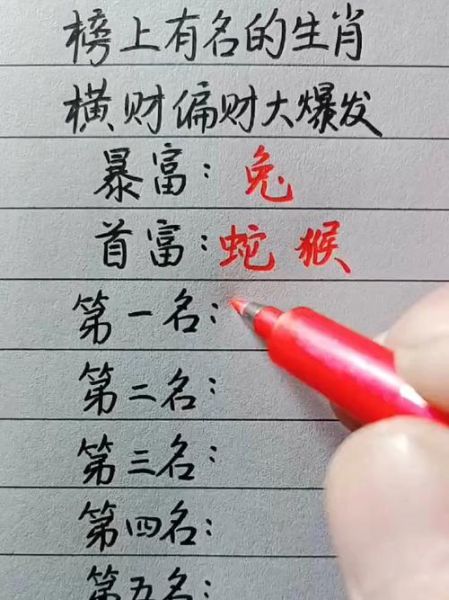 榜上有名的生肖
横财偏财大爆发
暴富：兔
首富：蛇 猴
第一名：
第二名：
第三名：
第四名：
第五名：